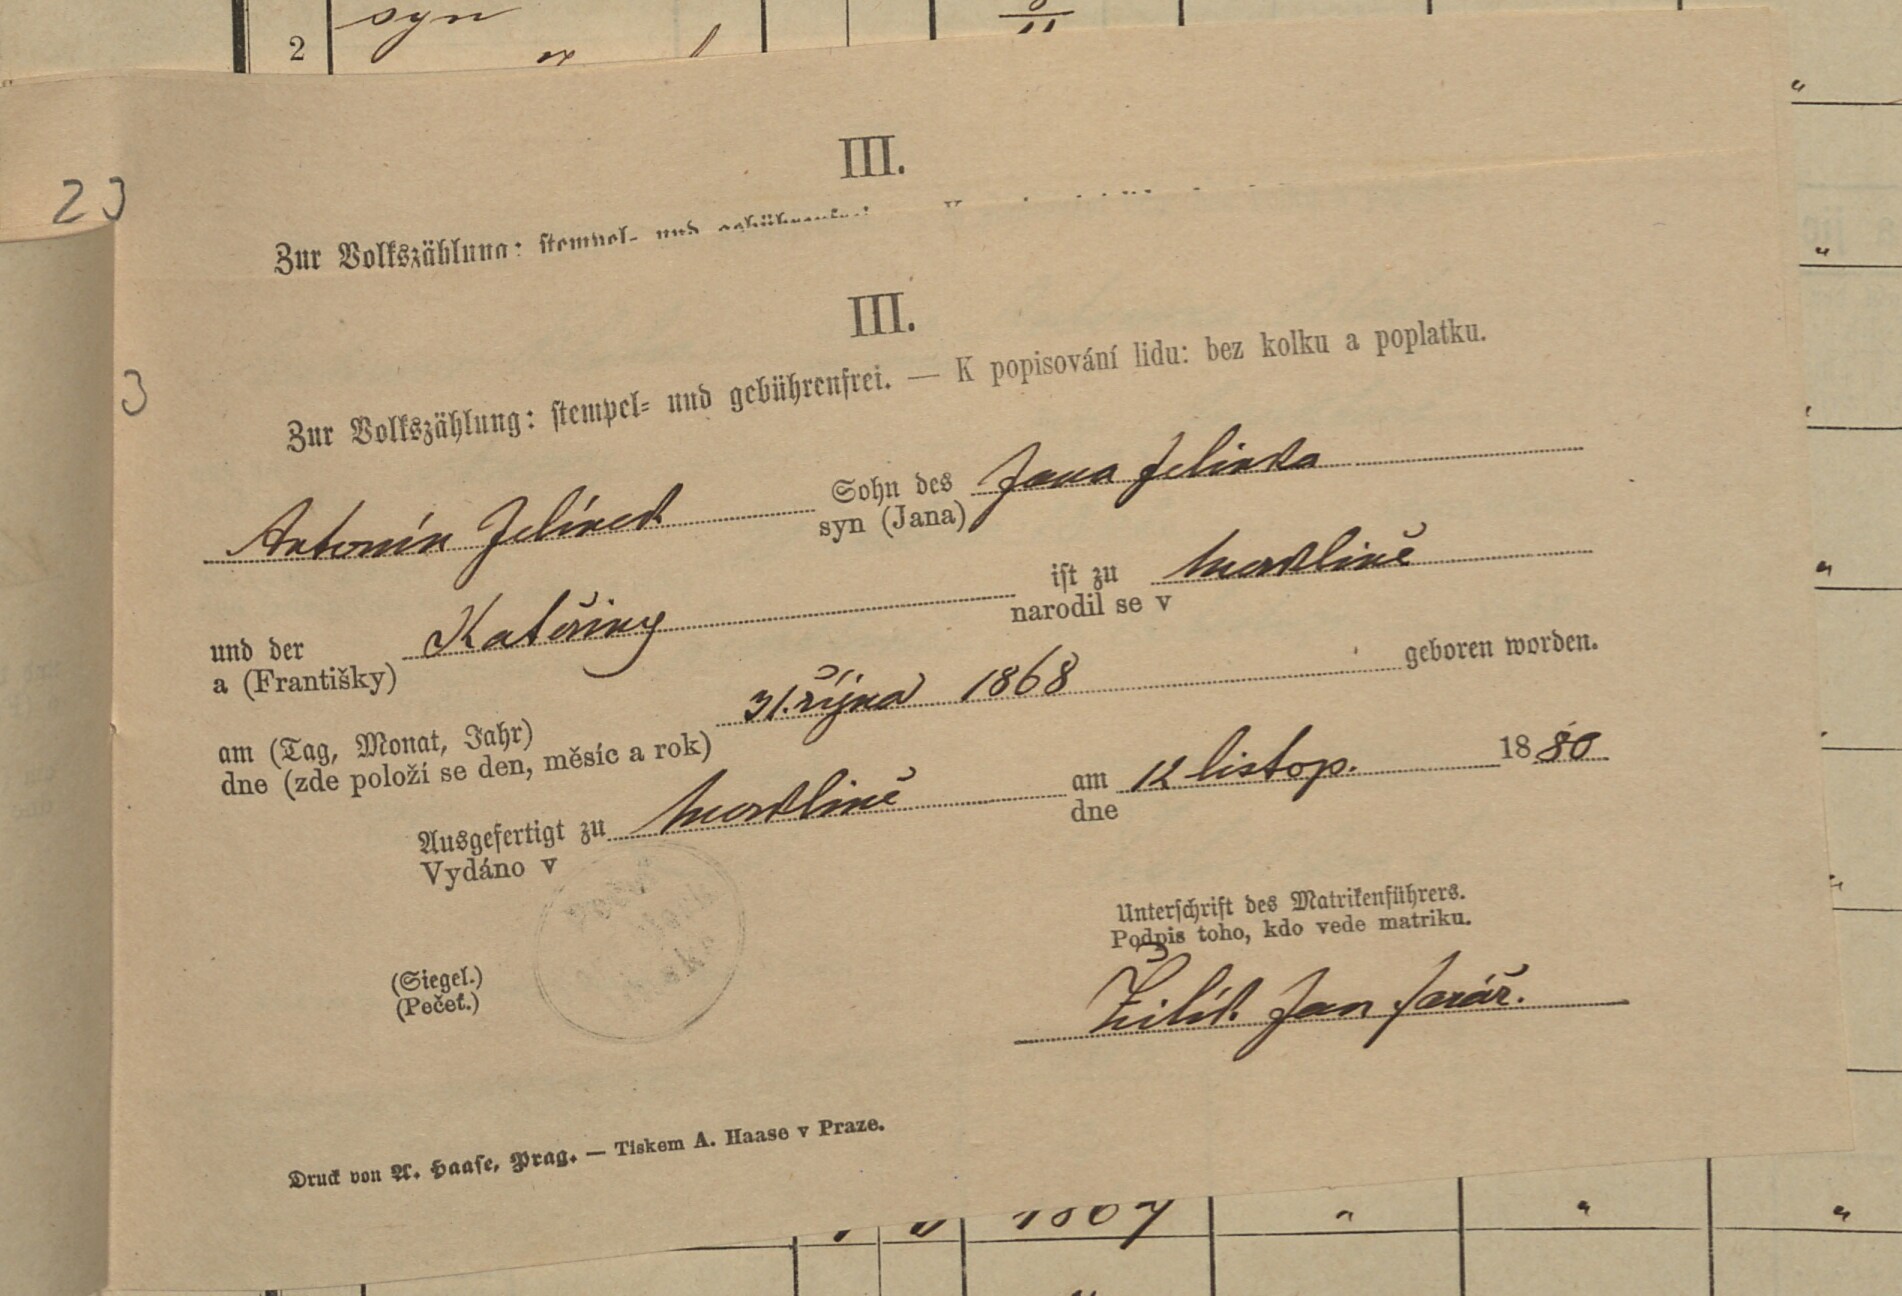 syn
2
23
III.
Zur Volkszählung: stempel- und gebührenfrei.
III.
3
Zur Volkszählung: stempel- und gebührenfrei. — K popisování lidu: bez kolku a poplatku.
Antonín Jelínek Sohn des Jana Jelínka
syn (Jana)
und der Kateřiny ist zu
a (Františky) narodil se v
am (Tag, Monat, Jahr) 31. října 1868 geboren worden.
dne (zde položí se den, měsíc a rok)
Ausgefertigt zu am 12 listop. 1880
Vydáno v dne
Unterschrift des Matrikenführers.
Podpis toho, kdo vede matriku.
(Siegel.)
(Pečeť.)
Jan farář.
Druck von A. Haase, Prag. — Tiskem A. Haase v Praze.
1867